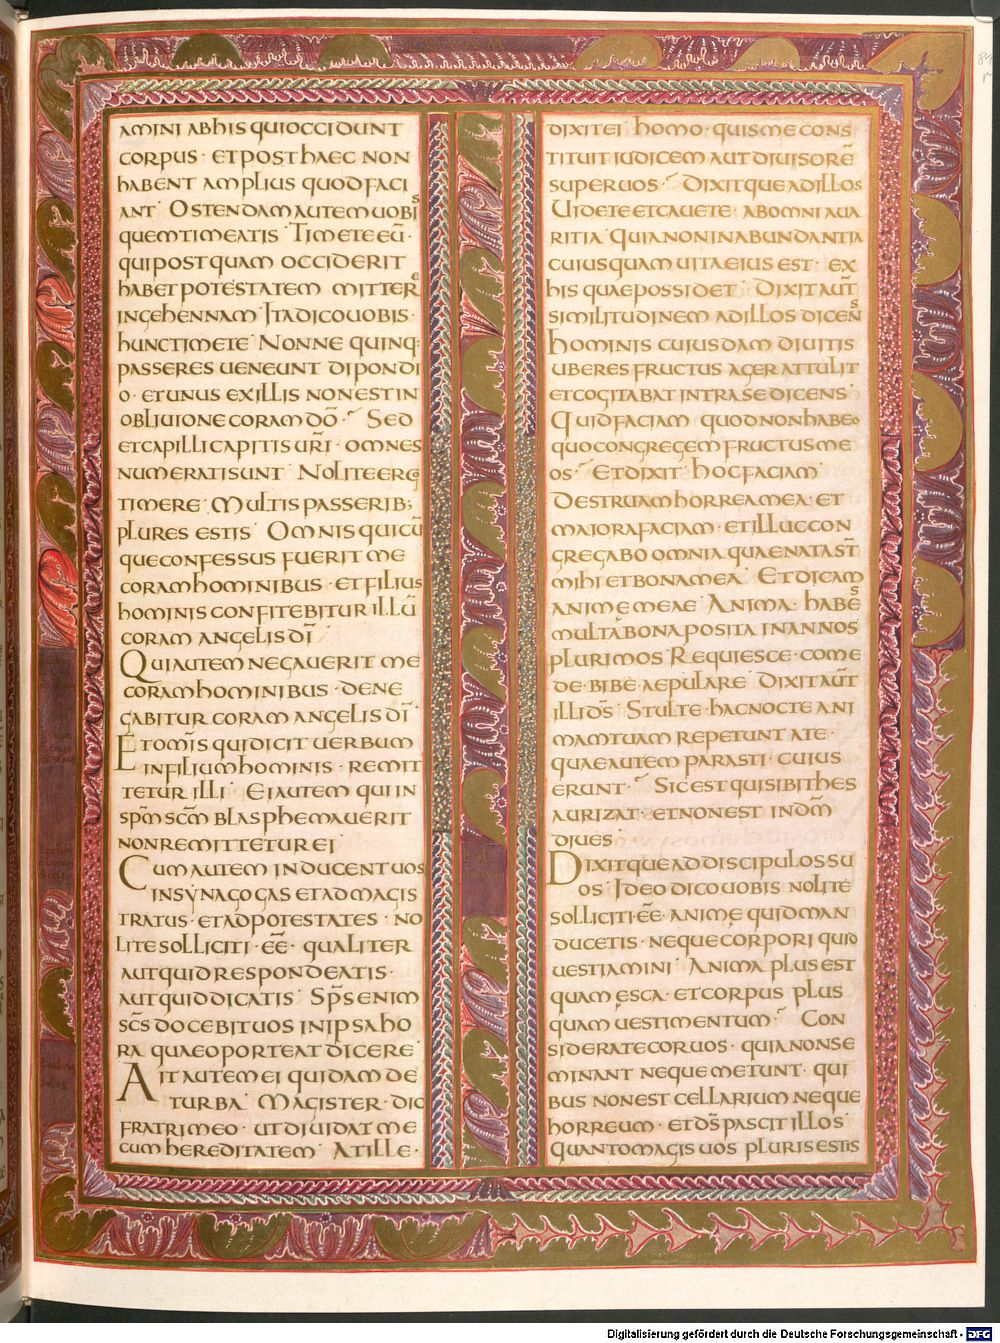 AMINI ABHIS QUIOCCIDUNT
CORPUS · ETPOSTHAEC NON
HABENT AMPLIUS QUODFACI
ANT · OSTENDAMAUTEMUOBIS
QUEMTIMEATIS · TIMETEEŪ ·
QUIPOSTQUAM OCCIDERIT
HABETPOTESTATEM MITTERE
INGEHENNAM · ITADICOUOBIS ·
HUNCTIMETE · NONNE QUINQ:
PASSERES UENEUNT DIPONDI
O · ETUNUS EXILLIS NONESTIN
OBLIUIONE CORAM DŌ · SED
ETCAPILLICAPITIS UR̄I · OMNES
NUMERATISUNT · NOLITEERGO
TIMERE · MULTIS PASSERIB;
PLURES ESTIS · OMNISQUICŪ
QUECONFESSUS FUERITME
CORAMHOMINIBUS · ETFILIUS
HOMINIS CONFITEBITUR ILLŪ
CORAM ANGELIS DĪ
QUIAUTEM NEGAUERIT ME
CORAMHOMINIBUS · DENE
GABITUR CORAM ANGELIS DĪ
ETOMĪS QUIDICIT UERBUM
INFILIUMHOMINIS · REMIT
TETUR ILLI · EIAUTEM QUIIN
SPM̄ SCM̄ BLASPHEMAUERIT
NONREMITTETUREI
CUMAUTEM INDUCENTUOS
INSYNAGOGAS ETADMAGIS
TRATUS · ETADPOTESTATES · NO
LITESOLLICITI · EĒ · QUALITER
AUTQUIDRESPONDEATIS ·
AUTQUIDDICATIS · SPS̄ ENIM
SCS̄ DOCEBITUOS INIPSAHO
RA QUAEOPORTEATDICERE
AITAUTEMEI QUIDAM DE
TURBA · MAGISTER · DIC
FRATRIMEO · UTDIUIDATME
CUMHEREDITATEM · ATILLE ·
DIXITEI HOMO · QUISMECONS
TITUITIUDICEM AUTDIUISORĒ
SUPERUOS · DIXITQUEADILLOS
UIDETEETCAUETE · ABOMNIAUA
RITIA · QUIANONINABUNDANTIA
CUIUSQUAM UITAEIUS EST · EX
HIS QUAEPOSSIDET · DIXITAUT̄
SIMILITUDINEM ADILLOS DICENS
HOMINIS CUIUSDAM DIUITIS
UBERES FRUCTUS AGERATTULIT
ETCOGITABAT INTRASE DICENS ·
QUIDFACIAM QUODNONHABEO
QUOCONGREGEM FRUCTUSME
OS · ETDIXIT · HOCFACIAM ·
DESTRUAMHORREAMEA · ET
MAIORAFACIAM · ETILLUCCON
GREGABO OMNIA QUAENATAST̄
MIHI ETBONAMEA · ETDICAM
ANIMEMEAE · ANIMA · HABES
MULTABONAPOSITA INANNOS
PLURIMOS · REQUIESCE · COME
DE · BIBE · AEPULARE · DIXITAUT̄
ILLIDS̄ · STULTE · HACNOCTE ANI
MAMTUAM REPETUNT ATE ·
QUAEAUTEM PARASTI · CUIUS
ERUNT · SICEST QUISIBITHES
AURIZAT · ETNONEST INDM̄
DIUES
DIXITQUEADDISCIPULOSSU
OS · IDEO DICOUOBIS NOLITE
SOLLICITI · EĒ · ANIMĘ QUIDMAN
DUCETIS · NEQUECORPORI QUID
UESTIAMINI · ANIMA PLUSEST
QUAM ESCA · ETCORPUS PLUS
QUAM UESTIMENTUM · CON
SIDERATECORUOS · QUIANONSE
MINANT NEQUEMETUNT · QUI
BUS NONESTCELLARIUM NEQUE
HORREUM · ETDS̄ PASCIT ILLOS ·
QUANTOMAGISUOS PLURISESTIS
Digitalisierung gefördert durch die Deutsche Forschungsgemeinschaft - DFG